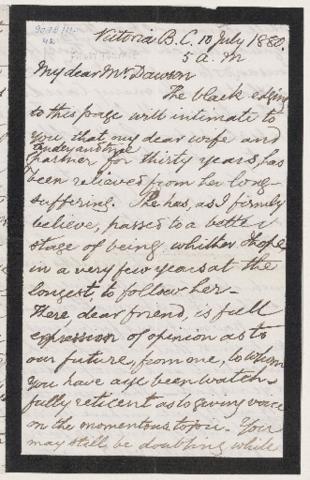 Victoria B.C. 10 July 1880.
5 a.m
My dear Mr Dawson
The black edging
to this page will intimate to
you that my dear wife and
tender and true
partner for thirty years, has
been relieved from her long
suffering. She has, as I firmly
believe, passed to a better
stage of being whither I hope
in a very few years at the
longest, to follow her—
Here dear friend, is full
expression of opinion as to
our future, from one, to whom
you have aye been watch-
fully reticent as to giving voice
on the momentous topic. You
may still be doubting while